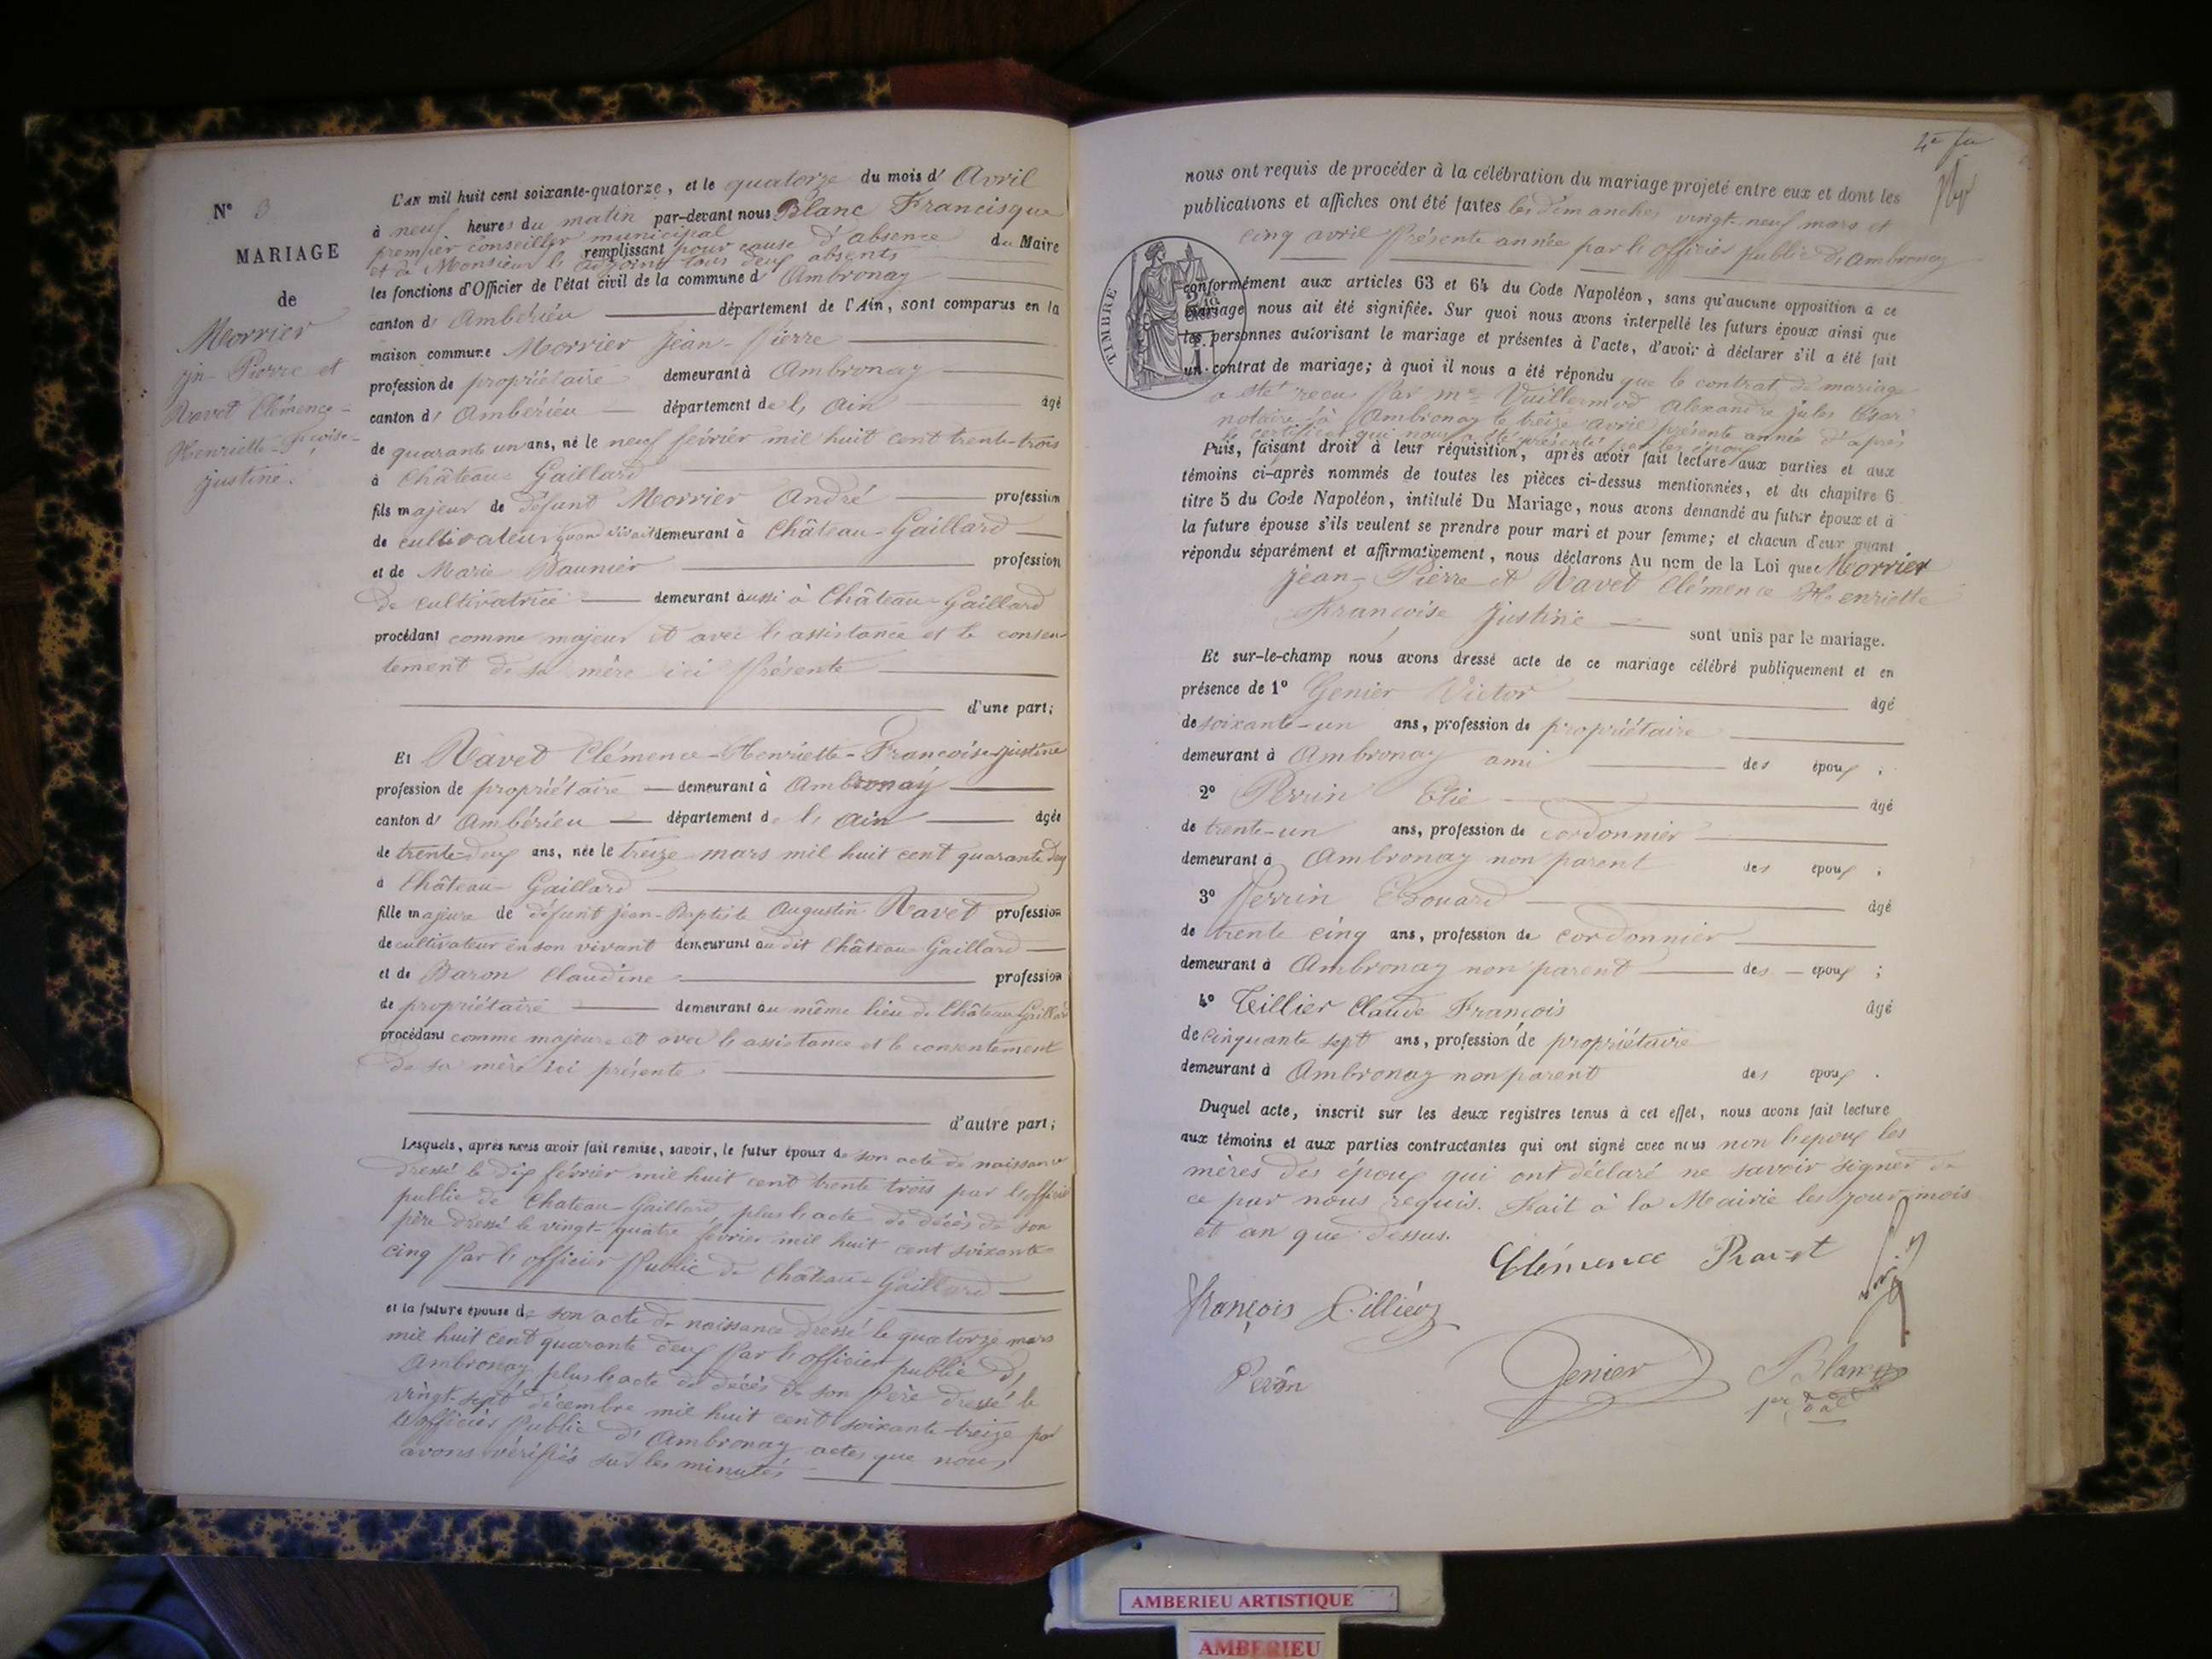 N° 3
MARIAGE
de
Morrier
Jn Pierre et
Ravet Clémence-
Henriette-Fçoise-
justine.
L'AN mil huit cent soixante-quatorze, et le quatorze du mois d' Avril
à neuf heures du matin par-devant nous Blanc Francisque
premier conseiller municipal remplissant pour cause d'absence du Maire
et de Monsieur l'adjoint tous deux absents
les fonctions d'Officier de l'état civil de la commune d' Ambronay
canton d' Ambérieu département de l'Ain, sont comparus en la
maison commune Morrier Jean-Pierre
profession de propriétaire demeurant à Ambronay
canton d' Ambérieu département de l'Ain âgé
de quarante un ans, né le neuf février mil huit cent trente-trois
à Château-Gaillard
fils majeur de défunt Morrier André profession
de cultivateur quand vivait demeurant à Château-Gaillard
et de Marie Baunier profession
de cultivatrice demeurant aussi à Château-Gaillard
procédant comme majeur et avec l'assistance et le consen-
tement de sa mère ici présente
d'une part;
Et Ravet Clémence-Henriette-Françoise-justine
profession de propriétaire demeurant à Ambronay
canton d' Ambérieu département de l'Ain âgée
de trente-deux ans, née le treize mars mil huit cent quarante deux
à Château-Gaillard
fille majeure de défunt jean-Baptiste Augustin Ravet profession
de cultivateur en son vivant demeurant au dit Château-Gaillard
et de Baron Claudine profession
de propriétaire demeurant au même lieu de Château-Gaillard
procédant comme majeure et avec l'assistance et le consentement
de sa mère ici présente
d'autre part;
Lesquels, après nous avoir fait remise, savoir, le futur époux de son acte de naissance
dressé le dix février mil huit cent trente trois par l'officier
public de Chateau-Gaillard, plus l'acte de décès de son
père dressé le vingt-quatre février mil huit cent soixante
cinq par l'officier Public de Château-Gaillard
et la future épouse de son acte de naissance dressé le quatorze mars
mil huit cent quarante deux par l'officier public d'
Ambronay, plus l'acte de décès de son Père dressé le
vingt-sept décembre mil huit cent soixante-treize par
l'officier Public d'Ambronay actes que nous
avons vérifiés sur les minutes
nous ont requis de procéder à la célébration du mariage projeté entre eux et dont les
publications et affiches ont été faites les dimanches vingt-neuf mars et
cinq avril présente année par l'officier public d'Ambronay
conformément aux articles 63 et 64 du Code Napoléon, sans qu'aucune opposition à ce
mariage nous ait été signifiée. Sur quoi nous avons interpellé les futurs époux ainsi que
les personnes autorisant le mariage et présentes à l'acte, d'avoir à déclarer s'il a été fait
un contrat de mariage; à quoi il nous a été répondu que le contrat de mariage
a été reçu par Me Vuillermod Alexandre jules César
notaire à Ambronay le treize avril présente année d'après
le certificat qui nous a été présenté par les époux
Puis, faisant droit à leur réquisition, après avoir fait lecture aux parties et aux
témoins ci-après nommés de toutes les pièces ci-dessus mentionnées, et du chapitre 6
titre 5 du Code Napoléon, intitulé Du Mariage, nous avons demandé au futur époux et à
la future épouse s'ils veulent se prendre pour mari et pour femme; et chacun d'eux ayant
répondu séparément et affirmativement, nous déclarons Au nom de la Loi que Morrier
Jean-Pierre et Ravet Clémence Henriette
Françoise Justine sont unis par le mariage.
Et sur-le-champ nous avons dressé acte de ce mariage célébré publiquement et en
présence de 1° Genier Victor âgé
de soixante-un ans, profession de propriétaire
demeurant à Ambronay ami des époux ;
2° Perrin Elie âgé
de trente-un ans, profession de cordonnier
demeurant à Ambronay non parent des époux ;
3° Perrin Edouard âgé
de trente cinq ans, profession de cordonnier
demeurant à Ambronay non parent des époux ;
4° Tillier Claude François âgé
de cinquante sept ans, profession de propriétaire
demeurant à Ambronay non parent des époux .
Duquel acte, inscrit sur les deux registres tenus à cet effet, nous avons fait lecture
aux témoins et aux parties contractantes qui ont signé avec nous non l'époux les
mères des époux qui ont déclaré ne savoir signer de
ce par nous requis. Fait à la Mairie les jour mois
et an que dessus.
Clémence Ravet
François Tillier
Genier
Blanc
TIMBRE
AMBERIEU ARTISTIQUE
AMBERIEU